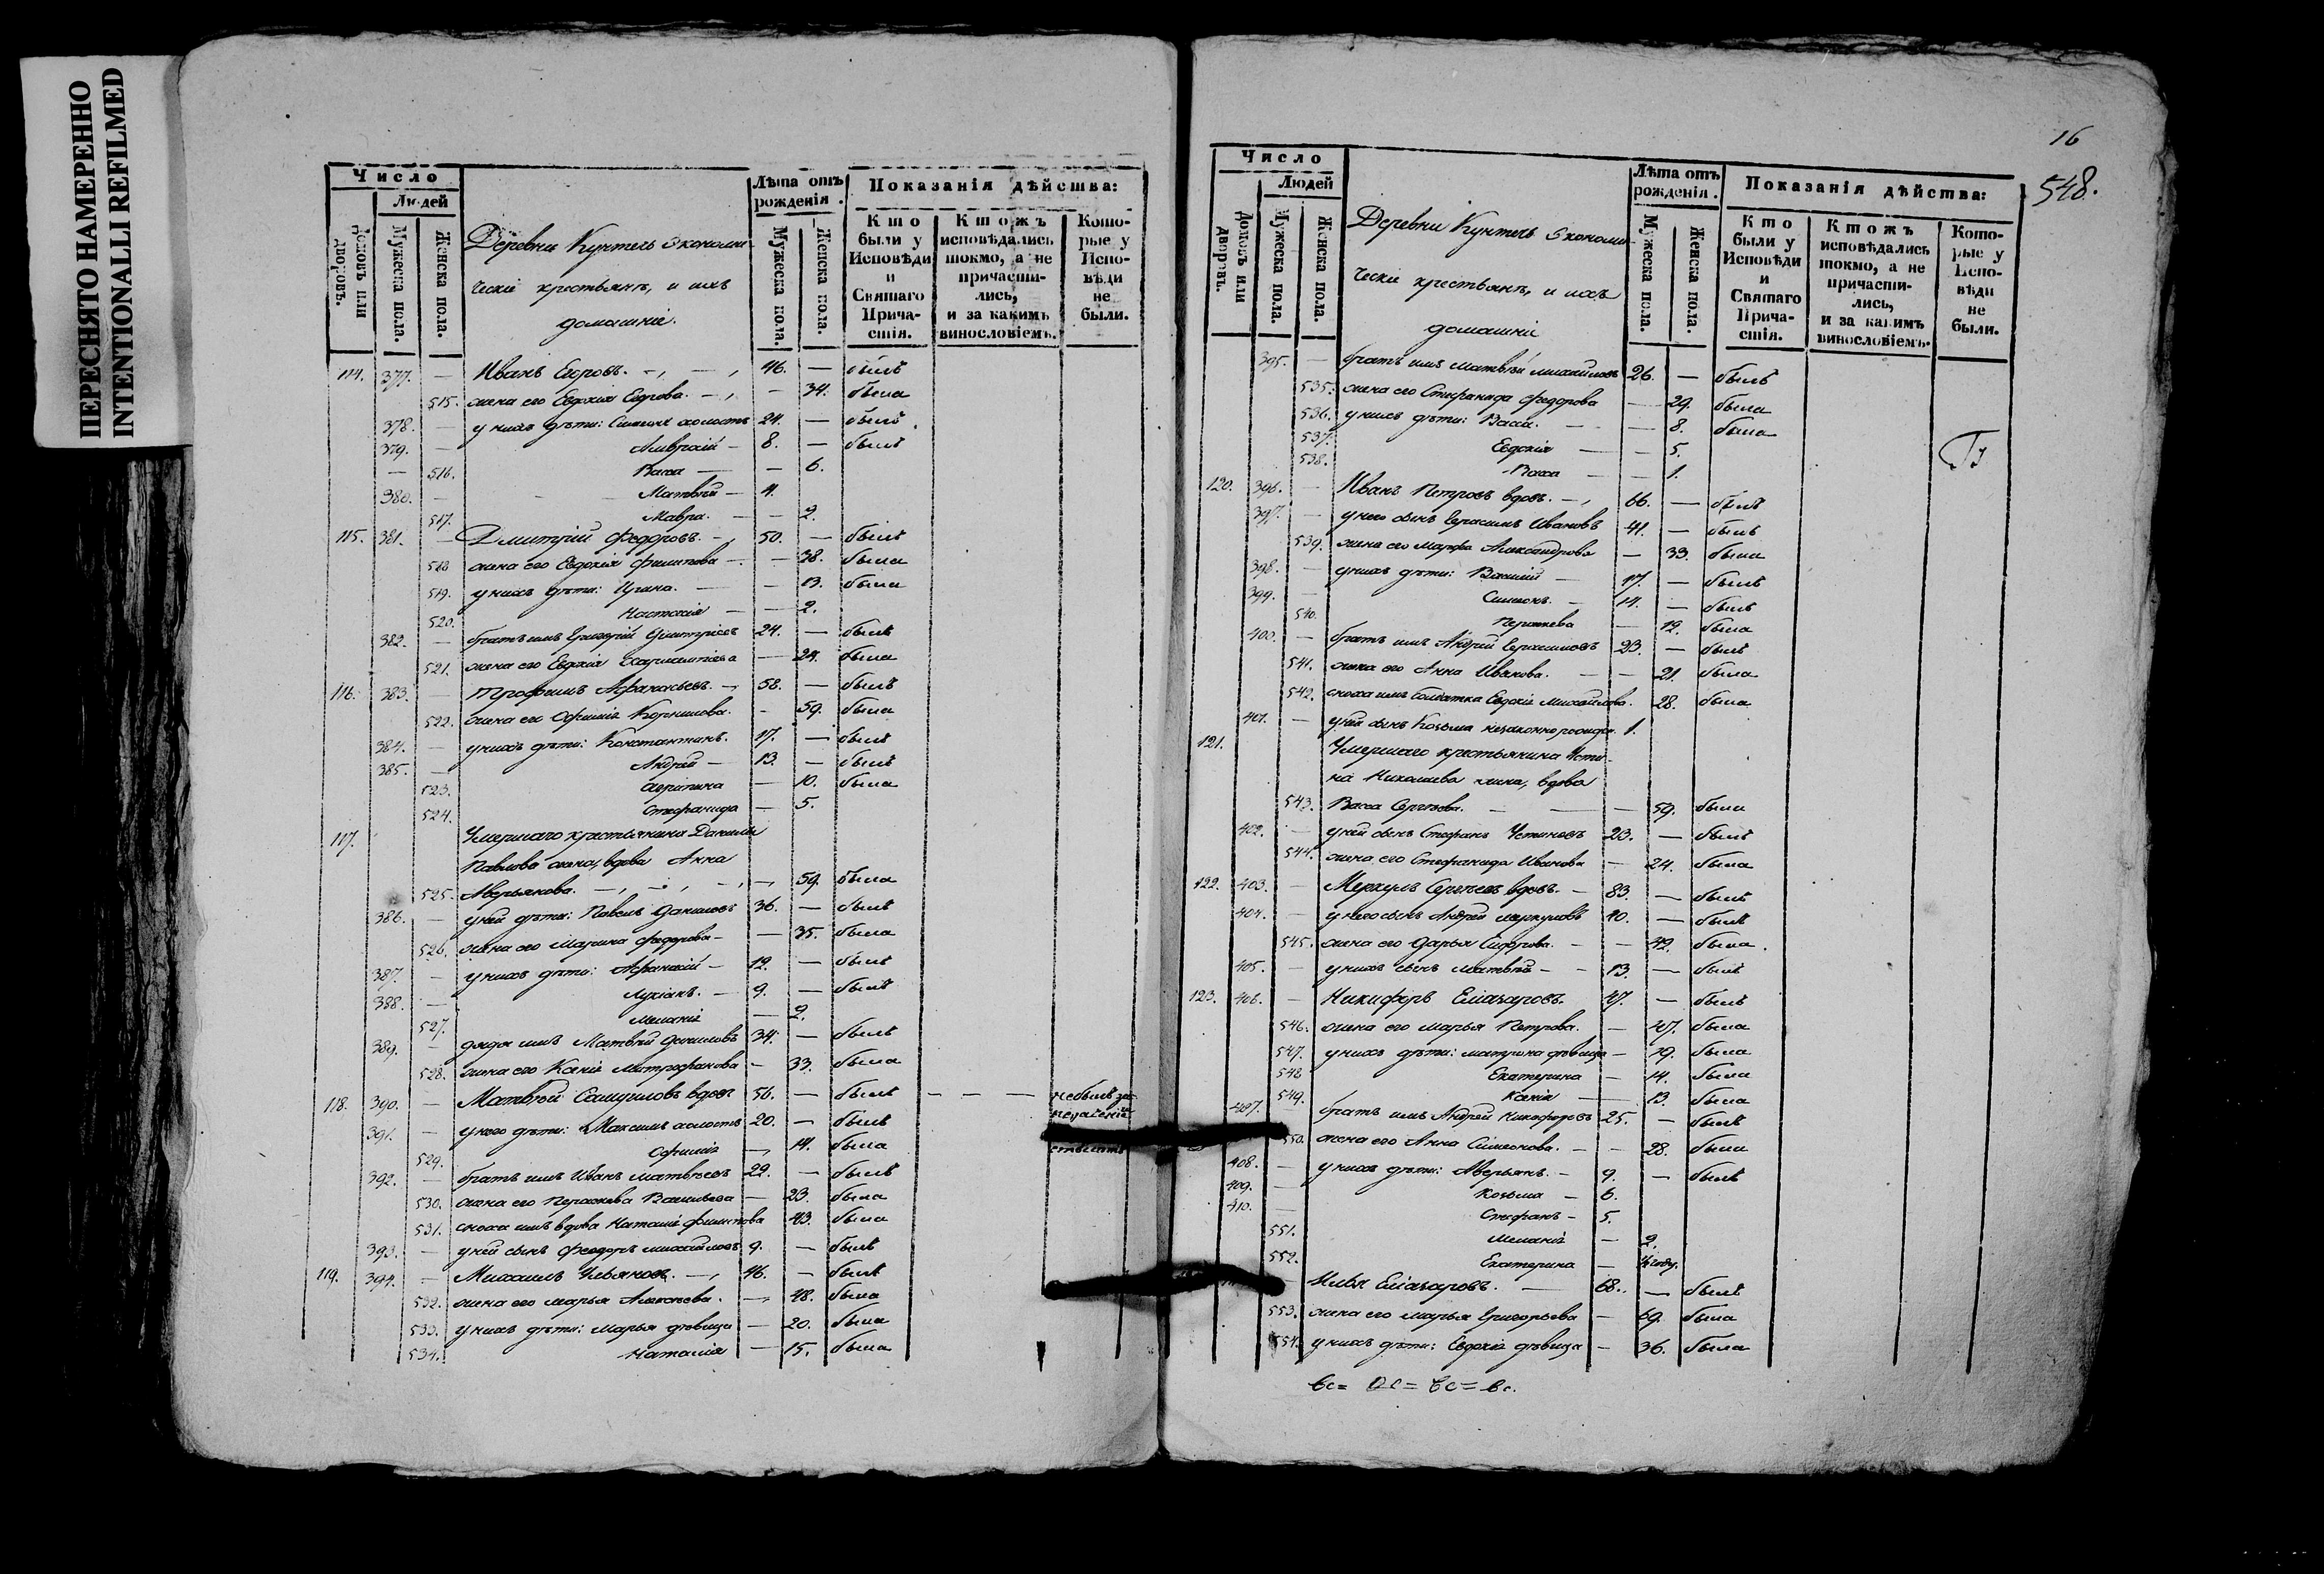 ПЕРЕСНЯТО НАМЕРЕННО
INTENTIONALLI REFILMED
Число
Людей
Домовъ или дворовъ.
Мужеска пола.
Женска пола.
Деревни Кунтечь Экономи-
чески крестьянъ, и ихъ
домашніе.
Лѣта отъ рожденія.
Мужеска пола.
Женска пола.
Показанія дѣйства:
Кто были у Исповѣди и Святаго Прича-стія.
Ктожъ исповѣдались токмо, а не причасти-лись, и за какимъ винословіемъ.
Кото-рые у Испо-вѣди не были.
114. 377. — Иванъ Егоровъ. 46. — былъ
515. жена его Евдокія Егорова. — 34. была
378. — у нихъ дѣти: Симеонъ холостъ 24. — былъ
379. — 8. — былъ
— 516. Васса — 6.
380. — Матвей — 4.
517. Мавра. — 2.
115. 381. — Дмитрій Федоровъ. 50. — былъ
518 жена его Евдокія Филипова — 38. была
519. у нихъ дѣти: — 13. была
520. Настасія — 2.
382. — братъ имъ Григорій Димитріевъ 24. — былъ
521. жена его Евдокія — 24. была
116. 383. — Трофимъ Афанасьевъ. 58. — былъ
522. жена его Офимія Корнилова. — 59. была
384. — у нихъ дѣти: Константинъ. 17. — былъ
385. — Андрей — 13. — былъ
523. — 10. была
524. Стефанида — 5.
117. Умершаго крестьянина Данилы
Павлова жена, вдова Анна
525. Аверьянова. 59. была
386. — у ней дѣти: Павелъ Даниловъ 36. — былъ
526. жена его Марина Федорова — 35. была
387. — у нихъ дѣти: Афанасій — 12. — былъ
388. — Лукіанъ. — 9. — былъ
527. Меланія — 2.
389. — дядя имъ Матвей Даниловъ 34. — былъ
528. жена его Ксенія Митрофанова — 33. была
118. 390. — Матвей Самуиловъ вдовъ 56. — былъ — — — небылъ за
391. — у него дѣти: Максимъ холостъ 20. — былъ
529. Офимія — 14. была
392. — братъ имъ Иванъ Матвеевъ 22. — былъ
530. жена его Васильева — 23. была
531. сноха имъ вдова Наталія Филипова 43. была
393. — у ней сынъ Феодоръ Михайловъ 9. — былъ
119. 394. — Михаилъ Ульяновъ. 46. — былъ
532. жена его Марья Алексеева. — 48. была
533. у нихъ дѣти: Марья дѣвица — 20. была
534. Наталія — 15. была
16
548.
Число
Людей
Домовъ или дворовъ.
Мужеска пола.
Женска пола.
Деревни Кунтечь Экономи-
чески крестьянъ, и ихъ
домашніе
Лѣта отъ рожденія.
Мужеска пола.
Женска пола.
Показанія дѣйства:
Кто были у Исповѣди и Святаго Прича-стія.
Ктожъ исповѣдались токмо, а не причасти-лись, и за какимъ винословіемъ.
Кото-рые у Испо-вѣди не были.
395. — братъ имъ Матвей Михайловъ 26. — былъ
535. жена его Стефанида Федорова — 29. была
536. у нихъ дѣти: Васса. — 8. была
537. Евдокія — 5.
538. Васса — 1.
120. 396. — Иванъ Петровъ вдовъ. 66. — былъ
397. — у него сынъ Герасимъ Ивановъ 41. — былъ
539. жена его Марфа Александрова — 33. была
398. — у нихъ дѣти: Василій — 17. — былъ
399. — Симеонъ. — 14. — былъ
540. — 12. была
400. — братъ имъ Андрей Герасимовъ 23. — былъ
541. жена его Анна Иванова. — 21. была
542. сноха имъ солдатка Евдокія Михайлова. 28. была
401. — у ней сынъ Козьма 1.
121. Умершаго крестьянина Усти-
на Николаева жена, вдова
543. Васса Сергеева. — 59. была
402. — у ней сынъ Стефанъ Устиновъ 23. — былъ
544. жена его Стефанида Иванова — 24. была
122. 403. — Меркулъ Сергеевъ вдовъ. — 83. — былъ
404. — у него сынъ Андрей Меркуловъ 40. — былъ
545. жена его Дарья Сидорова. — 42. была
405. — у нихъ сынъ Матвей — 13. — былъ
123. 406. — Никифоръ Еліазаровъ. 47. — былъ
546. жена его Марья Петрова. — 47. была
547. у нихъ дѣти: Матрона дѣвица — 19. была
548 Екатерина — 14. была
549. Ксенія — 13. была
407. — братъ имъ Андрей Никифоровъ 25. — былъ
550. жена его Анна Симеонова. — 28. была
408. — у нихъ дѣти: Аверьянъ. — 9. — былъ
409. — Козьма — 6.
410. — Стефанъ — 5.
551. Меланія — 2.
552. Екатерина — ½ году.
Илья Еліазаровъ. — 68. — былъ
553. жена его Марья Григорьева — 69. была
554. у нихъ дѣти: Евдокія дѣвица — 36. была